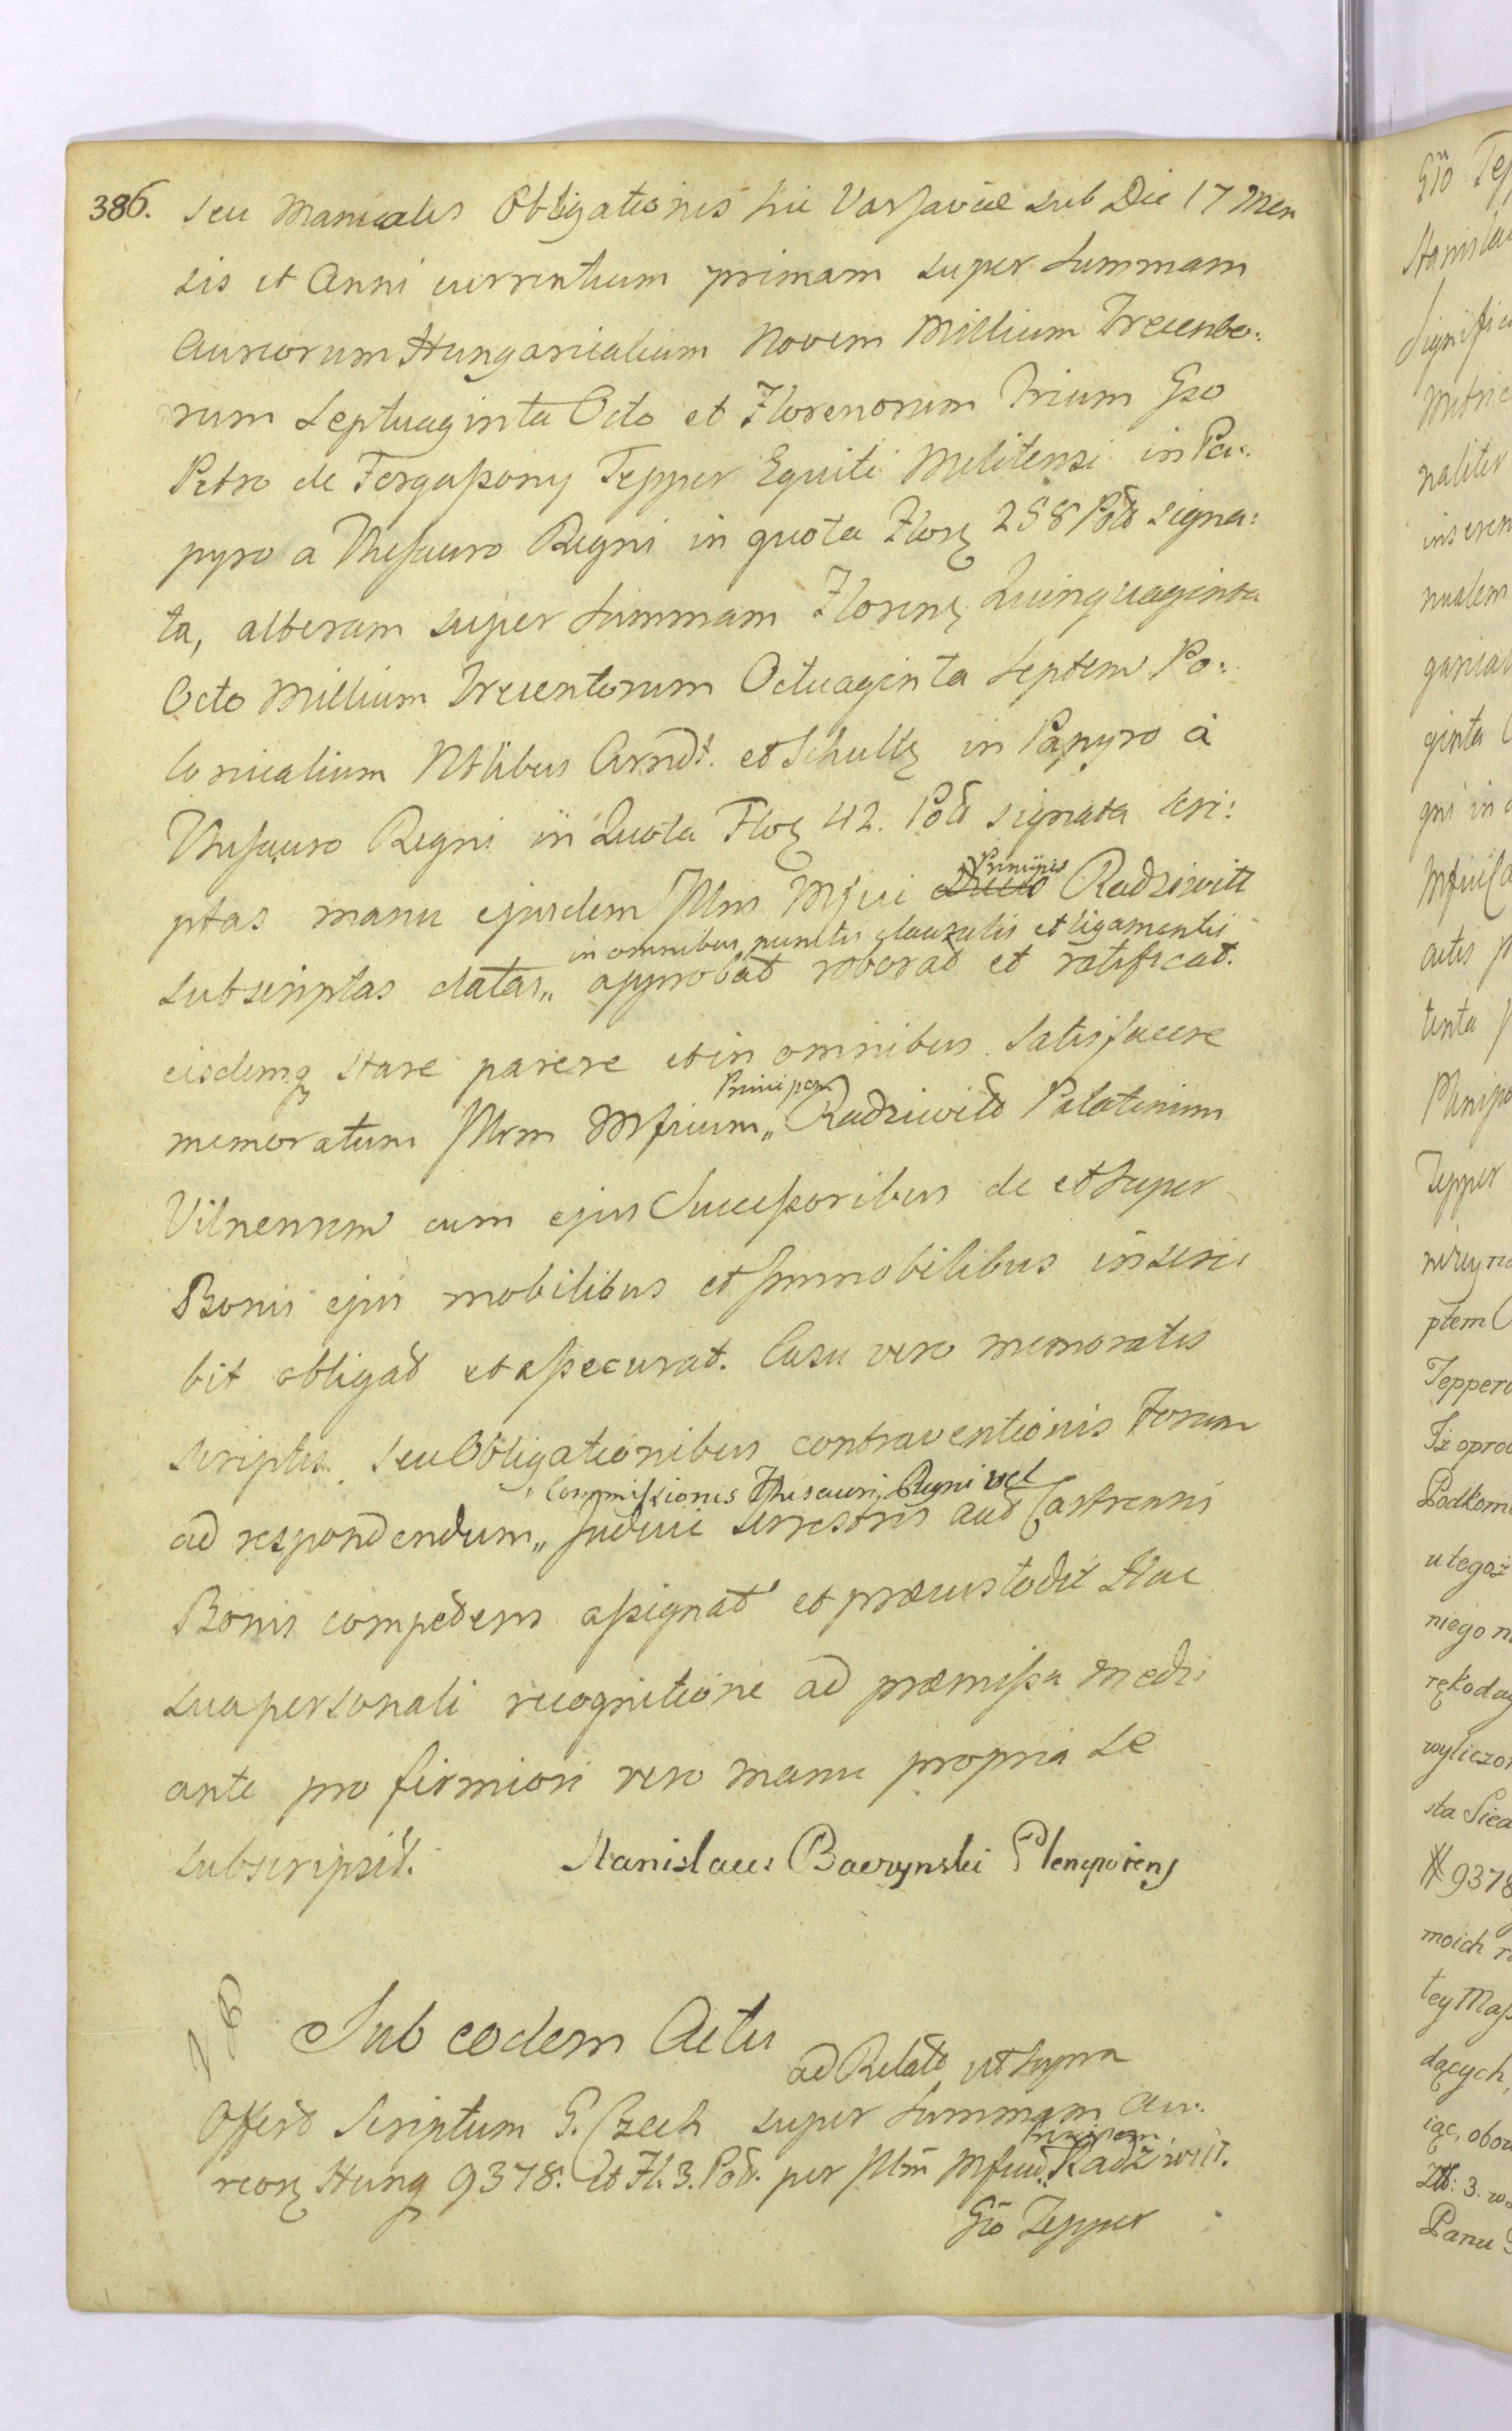 386. seu Manualis Obligationis hic Varsaviae sub Die 17 Men
sis et Anni currentium primam super Summam
Aureorum Hungaricalium Novem Millium Trecento:
rum Septuaginta Octo et Florenorum Trium Gso
Petro de Fergaßony Tepper Equiti Melitensi in Pa:
pyro a Thesauro Regni in quota Flor 288 Pol signa:
ta, alteram super Summam Floren Quinquaginta
Octo Millium Trecentorum Octuaginta Septem Po:
lonicalium Ntlibus Arndt. et Schultz in Papyro à
Thesauro Regni in Quota Flo 42. Pol signata scri:
Principis
ptas manu ejusdem Illris Mfici Ducis Radziwill
in omnibus punctis clausulis et ligamentis
subscriptas datas,, approbat roborat et ratificat.
eisdemq stare parere et in omnibus satisfacere
Principem
memoratum Illrm Mficum,, Radziwill Palatinum
Vilnensem cum ejus Successoribus de et super
Bonis ejus mobilibus et Immobilibus inscri
bit obligat et aßecurat. Casu vero memoratis
scriptis seu Obligationibus contraventionis Forum
Commißionis Thesauri Regni vel
ad respondendum,, Judicii terrestris aut Castrensis
Bonis competens aßignat et praecustodit Hac
sua personali recognitione ad praemißa medi
ante pro firmiori vero manu propria se
subscripsit. Stanislaus Baczynski Plenipotens
NB Sub eodem Actu
ad Relat ut supra
Offert Scriptum G. Czech super Summam Au:
Principem
reor Hung 9378. et Fl. 3. Pol. per Illm Mficum,, Radziwill.
Gso Tepper
Gso Tep
Stanislau
Significa
naliter
inseren
nualem
garical
ginta
gni in
actis
tenta
Tepper
ptem
Tepper
Iż opro
Podkom
u tegoż
niego
rękoday
wyliczo
sta Sied
# 9378
moich
tey Maß
dących,
iąc, obow
Zł: 3.
Panu